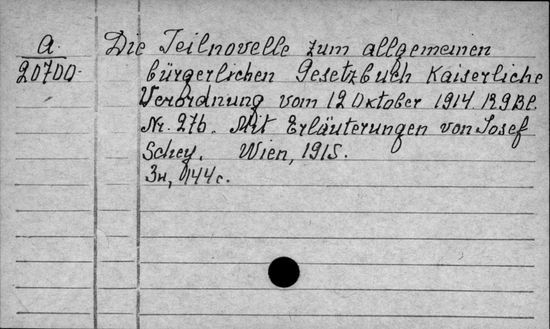 A
20700
Die Teilnovelle zum allgemeinen
bürgerlichen Gesetzbuch Kaiserliche
Verordnung vom 12 Oktober 1914 R.G.Bl.
Nr. 276. Mit Erläuterungen von Josef
Schey. Wien, 1915.
144 c.